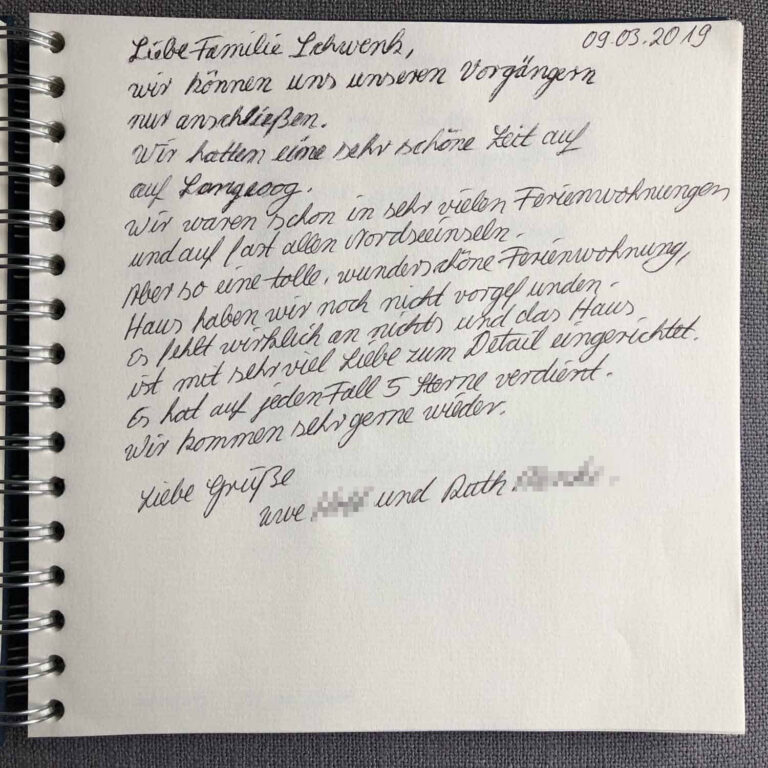 09.03.2019
Liebe Familie Schwenk,
wir können uns unseren Vorgängern
nur anschließen.
Wir hatten eine sehr schöne Zeit auf
auf Langeoog.
Wir waren schon in sehr vielen Ferienwohnungen
und auf fast allen Nordseeinseln.
Aber so eine tolle, wunderschöne Ferienwohnung,
Haus haben wir noch nicht vorgefunden.
Es fehlt wirklich an nichts und das Haus
ist mit sehr viel Liebe zum Detail eingerichtet.
Es hat auf jeden Fall 5 Sterne verdient.
Wir kommen sehr gerne wieder.
Liebe Grüße
Uwe und Ruth